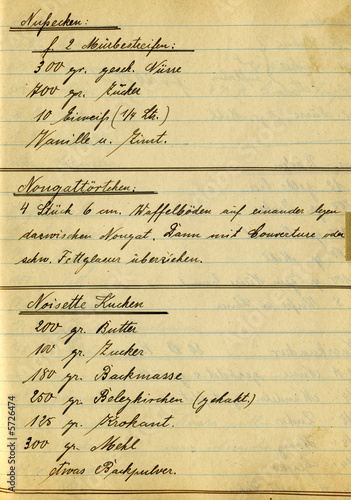 Nußecken:
f. 2 Mürbestreifen:
300 gr. gesch. Nüsse
700 gr. Zucker
10 Eiweiß (1/4 Ltr.)
Vanille u. Zimt.
Nougattörtchen:
4 Stück 6 cm. Waffelböden auf einander legen
dazwischen Nougat. Dann mit Couverture oder
schw. Fettglasur überziehen.
Noisette Kuchen
200 gr. Butter
100 gr. Zucker
180 gr. Backmasse
250 gr. Belegkirschen (gehakt.)
125 gr. Krokant.
300 gr. Mehl
etwas Backpulver.
Adobe Stock | #5726474